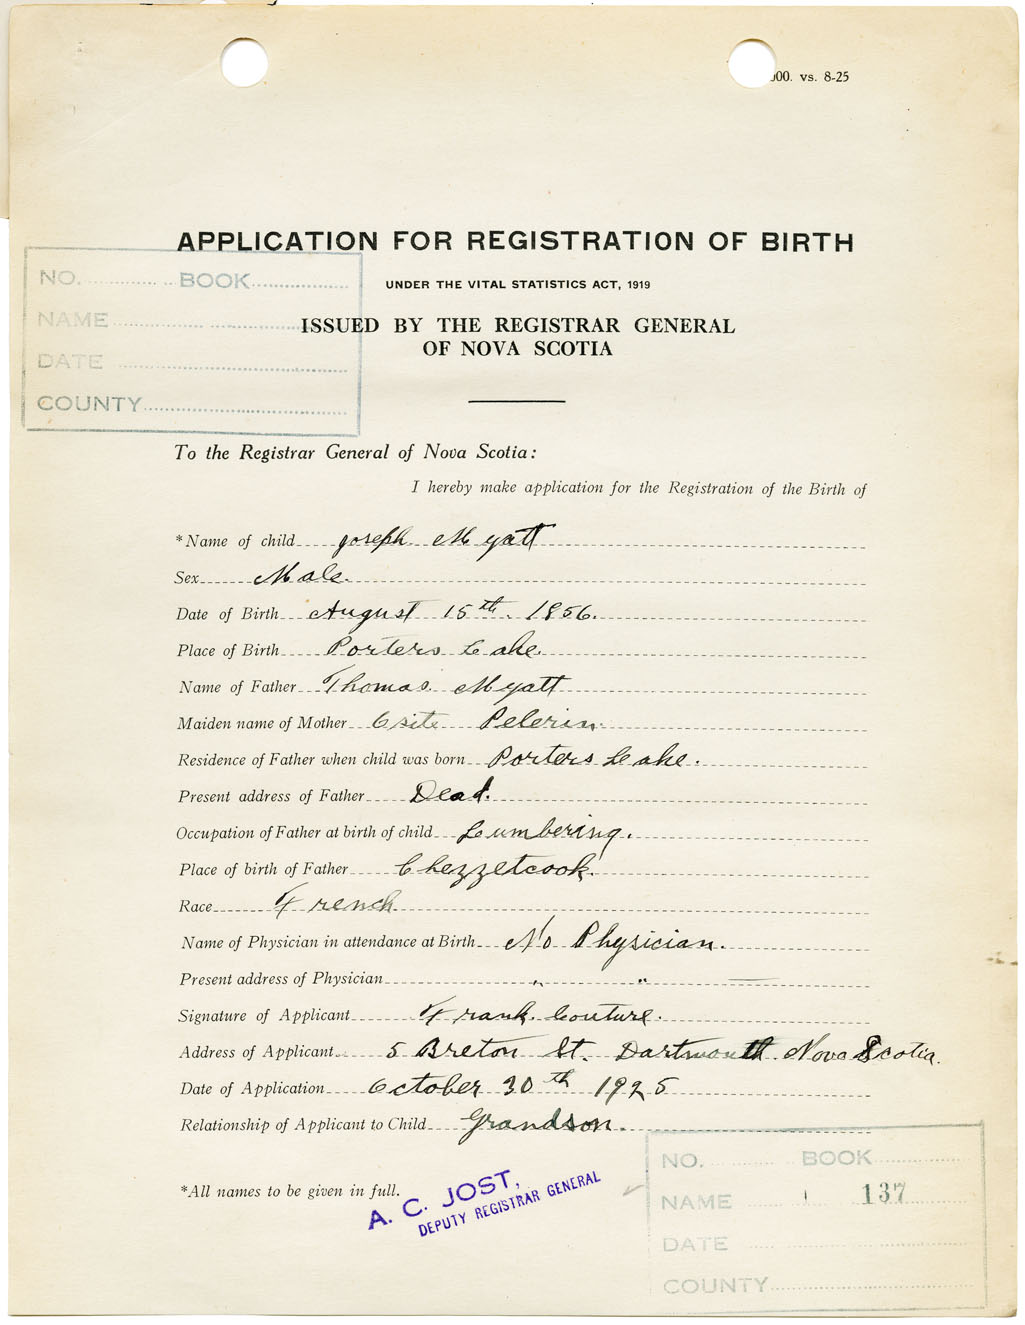 000. vs. 8-25
APPLICATION FOR REGISTRATION OF BIRTH
UNDER THE VITAL STATISTICS ACT, 1919
ISSUED BY THE REGISTRAR GENERAL
OF NOVA SCOTIA
NO. BOOK
NAME
DATE
COUNTY
To the Registrar General of Nova Scotia:
I hereby make application for the Registration of the Birth of
*Name of child Joseph Myatt
Sex Male.
Date of Birth August 15th. 1856.
Place of Birth Porters Lake.
Name of Father Thomas Myatt
Maiden name of Mother Osite Pelerin.
Residence of Father when child was born Porters Lake.
Present address of Father Dead.
Occupation of Father at birth of child Lumbering.
Place of birth of Father Chezzetcook.
Race French
Name of Physician in attendance at Birth No Physician.
Present address of Physician " "
Signature of Applicant Frank Couture.
Address of Applicant 5 Breton St. Dartmouth. Nova Scotia.
Date of Application October 30th 1925
Relationship of Applicant to Child Grandson.
*All names to be given in full.
A. C. JOST,
DEPUTY REGISTRAR GENERAL
NO. BOOK
NAME 137
DATE
COUNTY